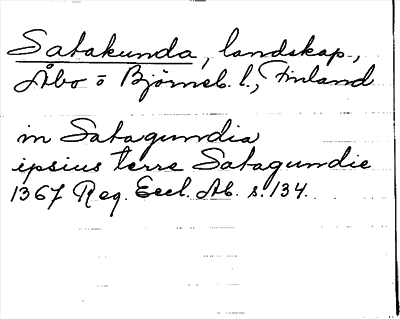 Satakunda, landskap,
Åbo o Björneb. l., Finland
in Satagundia
ipsius terre Satagundie
1367 Reg. Eccl. Ab. s. 134.